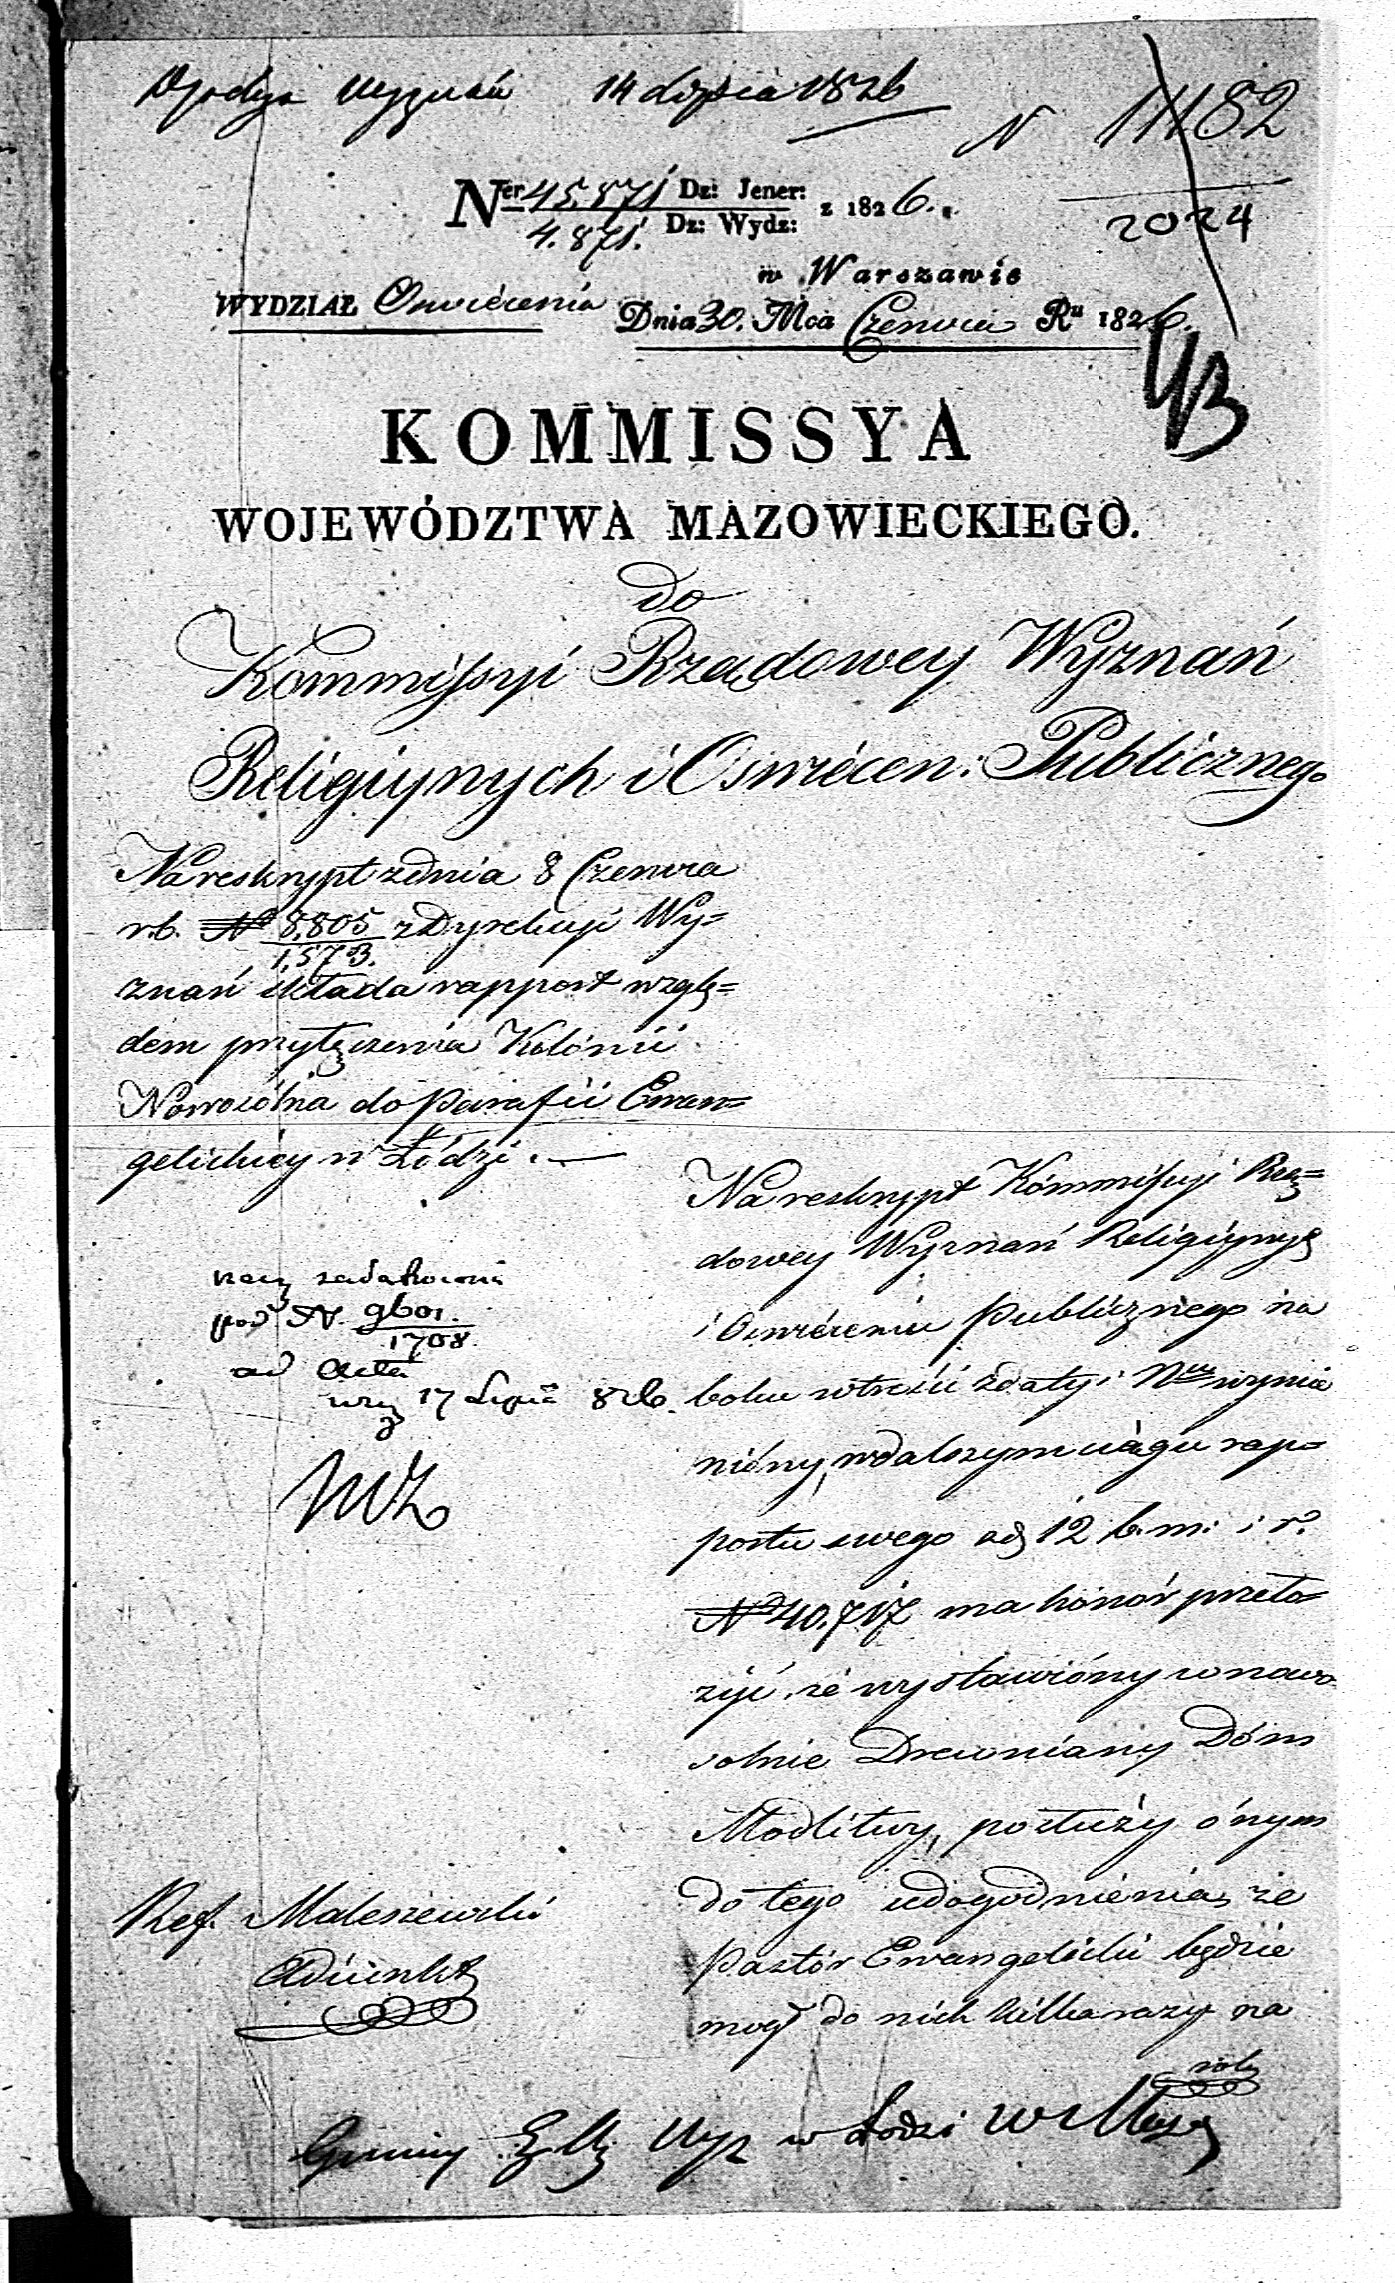 14 Lipca 1826
N 11182
2024
Ner 45.871 Dz: Jener: z 1826.
4.871. Dz: Wydz:
w Warszawie
WYDZIAŁ Oswiécenia Dnia 30. Mca Czerwca Ru 1826.
KOMMISSYA
WOJEWÓDZTWA MAZOWIECKIEGO.
do
Kommissyi Rządowey Wyznań
Religiynych i Oswiécen: Publicznego
Na reskrypt z dnia 8 Czerwca
r.b. No 8.805 z Dyrekcyi Wy=
1.573.
znań składa rapport wzglę=
dem przyłączenia Kolonii
Nowosolna do Parafii Ewan=
gelickiéy w Łodzi. —
Na reskrypt Kommissyi Rzą=
dowey Wyznań Religiynych
i Oswiécenia Publicznego na
boku w treści z daty i Nru wymie
niony, w dalszym ciągu rap=
portu swego z d. 12 b. m. i r.
No 40.717 ma honor przeło=
żyć, że wystawiony w nowo
solnie Drewniany Dóm
Modlitwy, posłuży onym
do tego udogodnienia, że
Pastór Ewangelicki będzie
mógł do nich kilka razy na
rok
pod N. 9601.
1708.
ad acta
17 Lipca 826.
Ref. Maleszewski
Adiunkt
Gminy w Łodzi